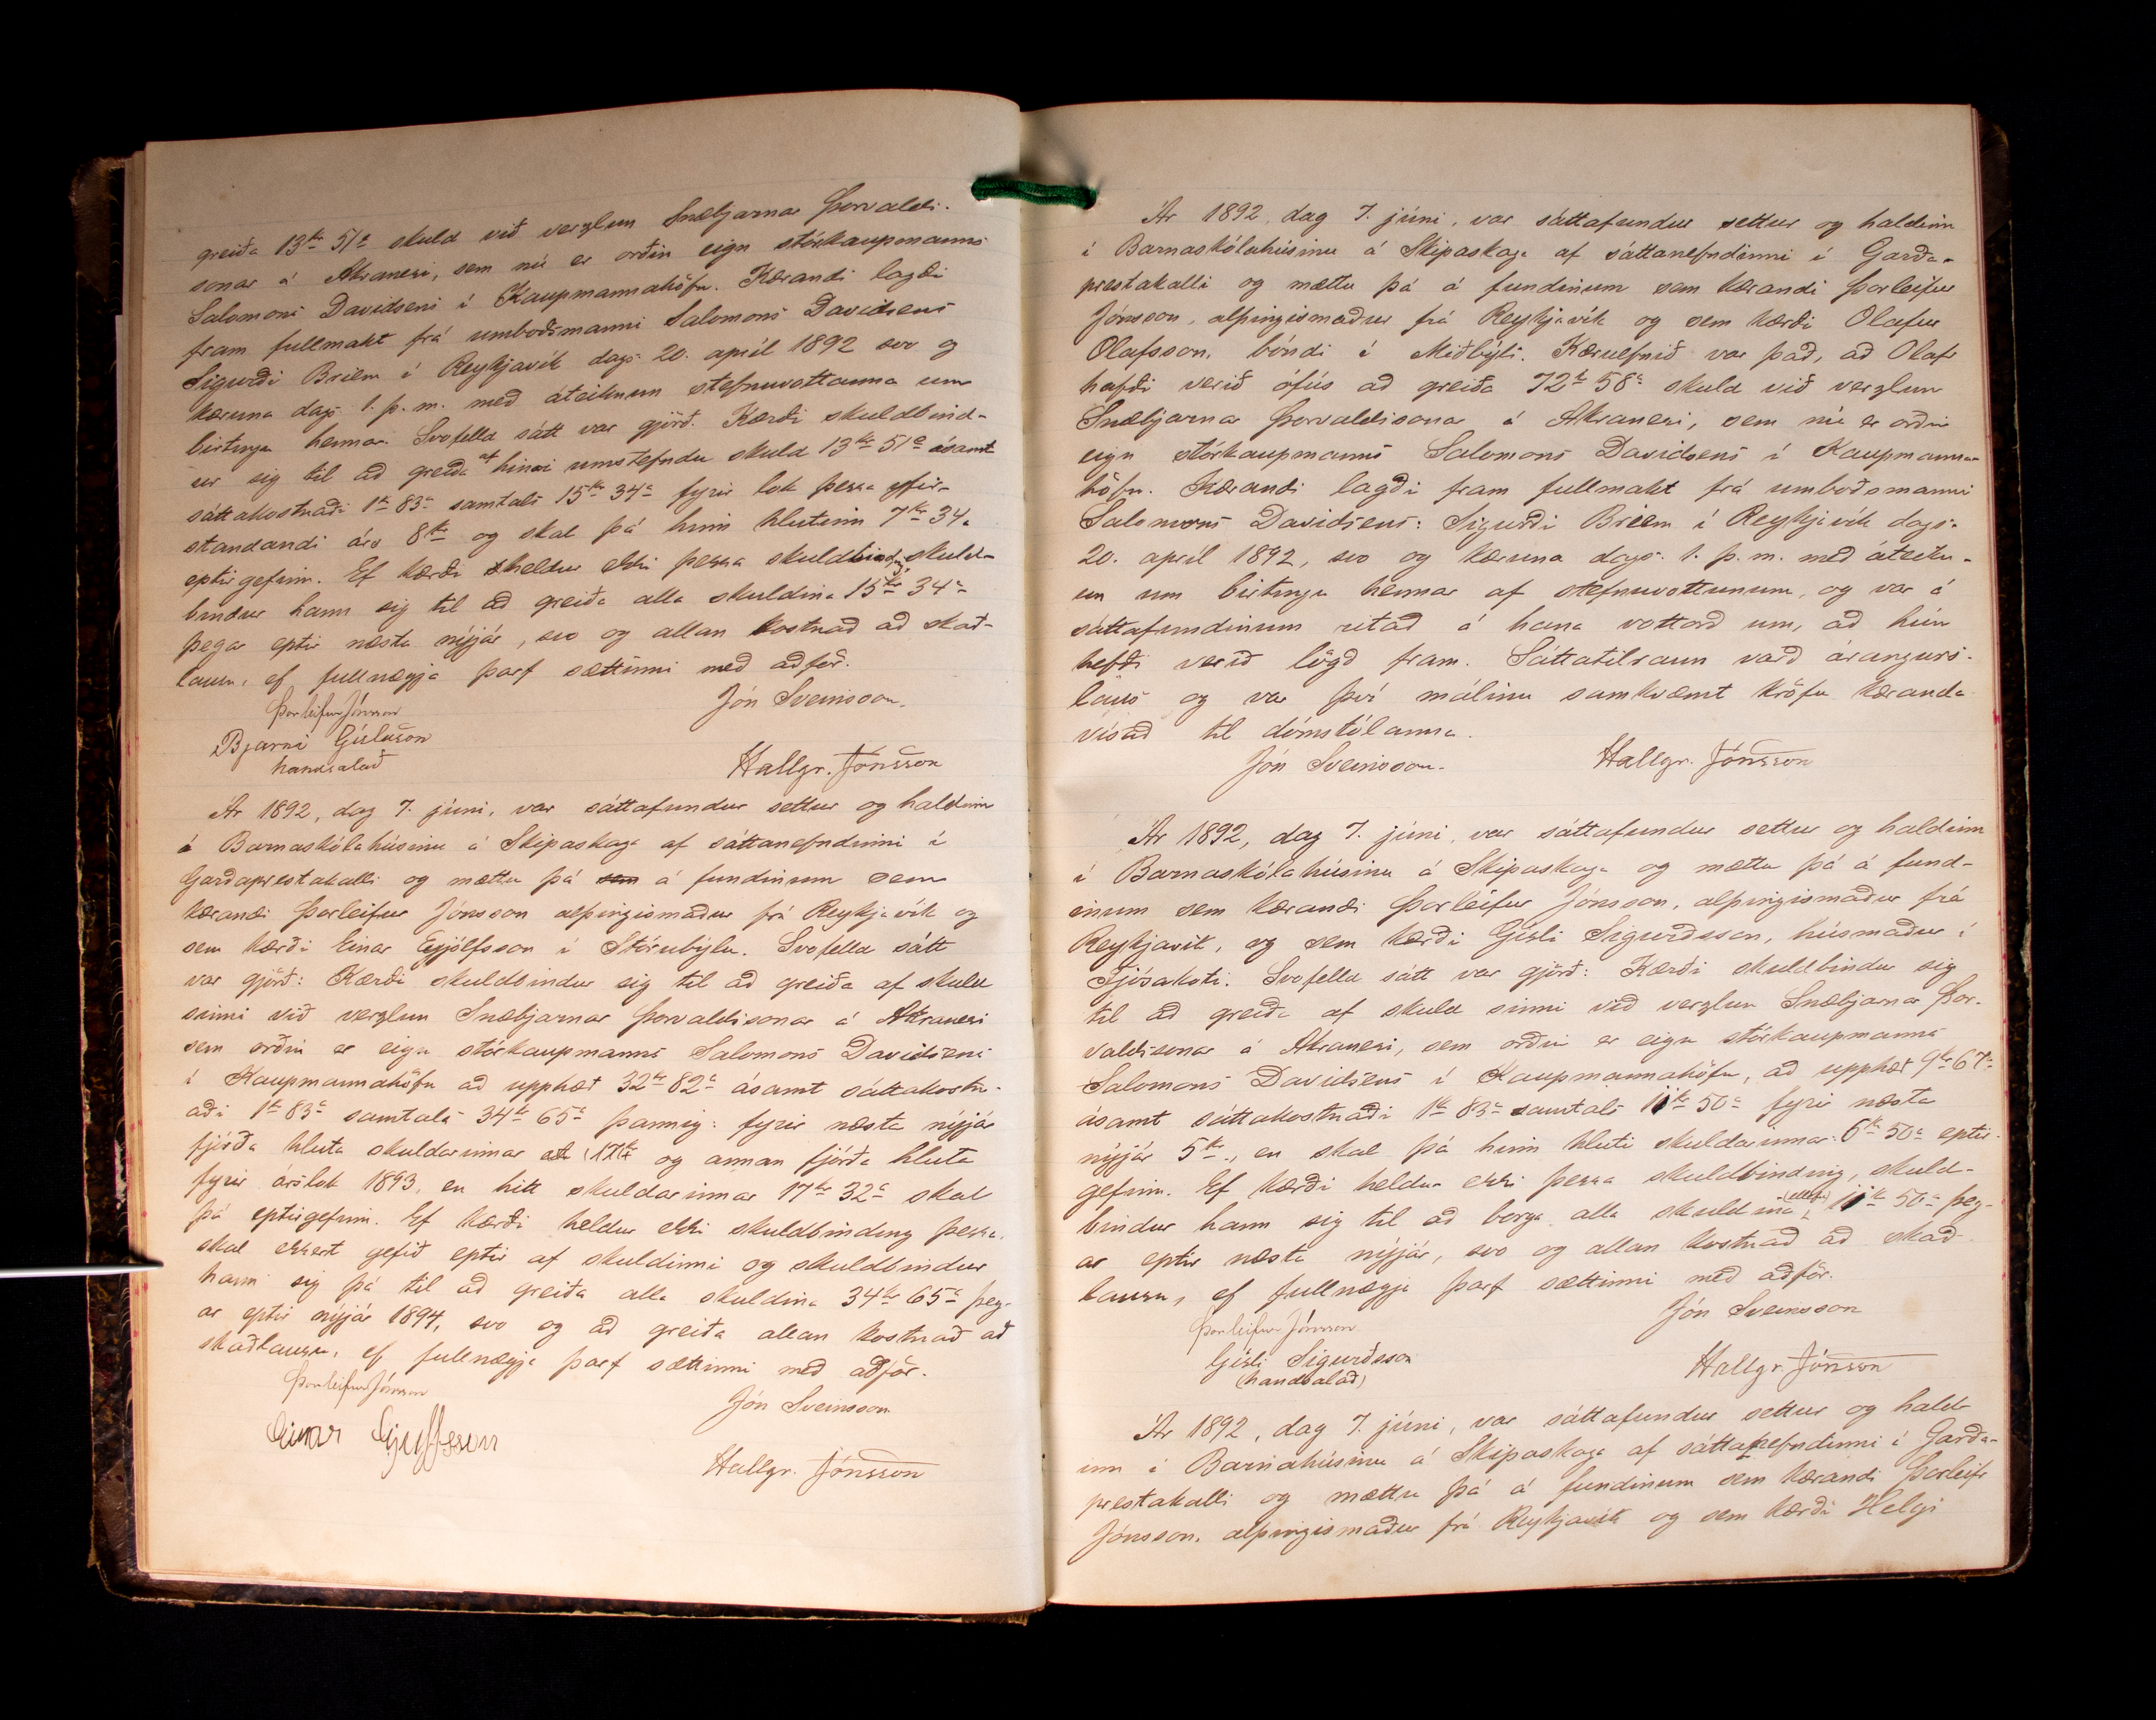 greiða 13kr 51a skuld við verzlun Snæbjarnar Þorvalds-
sonar á Akranesi, sem nú er orðin eign stórkaupmanns
Salomons Davidsens í Kaupmannahöfn. Kærandi lagði
fram fullmakt frá umboðsmanni Salomons Davidsens
Sigurði Briem í Reykjavík dags. 20. apríl 1892 svo og
kæruna dags. 1. þ. m. með áteiknun stefnuvottanna um
birtingu hennar. Svofelld sátt var gjörð. Kærði skuldbind-
ur sig til að greiða af hinni umstefndu skuld 13kr 51a ásamt
sáttakostnaði 1kr 83a samtals 15kr 34a fyrir lok þessa yfir-
standandi árs 8kr og skal þá hinn hlutinn 7kr 34a
eptirgefinn. Ef kærði heldur ekki þessa skuldbinding, skuld-
bindur hann sig til að greiða alla skuldina 15kr 34a
þegar eptir næsta nýjár, svo og allan kostnað að skað-
lausu, ef fullnægja þarf sættinni með aðför.
Þorleifur Jónsson
Jón Sveinsson.
Bjarni Gíslason
handsalað
Hallgr. Jónsson
Ár 1892, dag 7. júní, var sáttafundur settur og haldinn
á Barnaskólahúsinu á Skipaskaga af sáttanefndinni í
Garðaprestakalli og mættu þá sem á fundinum sem
kærandi Þorleifur Jónsson alþingismaður frá Reykjavík og
sem kærði Einar Eyjólfsson í Stórubýlu. Svofelld sátt
var gjörð: Kærði skuldbindur sig til að greiða af skuld
sinni við verzlun Snæbjarnar Þorvaldssonar á Akranesi
sem orðin er eign stórkaupmanns Salomons Davidsens
í Kaupmannahöfn að upphæð 32kr 82a ásamt sáttakostn-
aði 1kr 83a samtals 34kr 65a þannig: fyrir næsta nýjár
fjórða hluta skuldarinnar og annan fjórða hluta
fyrir árslok 1893, en hitt skuldarinnar 17kr 32a skal
þá eptirgefinn. Ef kærði heldur ekki skuldbinding þessa,
skal ekkert gefið eptir af skuldinni og skuldbindur
hann sig þá til að greiða alla skuldina 34kr 65a þeg-
ar eptir nýjár 1894, svo og að greiða allan kostnað að
skaðlausu, ef fullnægja þarf sættinni með aðför.
Þorleifur Jónsson
Jón Sveinsson
Einar
Hallgr. Jónsson
Ár 1892, dag 7. júní, var sáttafundur settur og haldinn
í Barnaskólahúsinu á Skipaskaga af sáttanefndinni í Garða-
prestakalli og mættu þá á fundinum sem kærandi Þorleifur
Jónsson, alþingismaður frá Reykjavík og sem kærði Olafur
Olafsson, bóndi í Miðbýli. Kæruefnið var það, að Olafr
hafði verið ófús að greiða 72kr 58a skuld við verzlun
Snæbjarnar Þorvaldssonar á Akranesi, sem nú er orðin
eign stórkaupmanns Salomons Davidsens í Kaupmanna-
höfn. Kærandi lagði fram fullmakt frá umboðsmanni
Salomons Davidsens: Sigurði Briem í Reykjavík dags.
20. apríl 1892, svo og kæruna dags. 1. þ. m. með áteikn-
un um birtingu hennar af stefnuvottunum, og var á
sáttafundinum ritað á hana vottorð um, að hún
hefði verið lögð fram. Sáttatilraun varð árangurs-
laus og var því málinu samkvæmt kröfu kæranda
vísað til dómstólanna.
Jón Sveinsson.
Hallgr. Jónsson
Ár 1892, dag 7. júní, var sáttafundur settur og haldinn
í Barnaskólahúsinu á Skipaskaga og mættu þá á fund-
inum sem kærandi Þorleifur Jónsson, alþingismaður frá
Reykjavík, og sem kærði Gísli Sigurðsson, húsmaður í
Fjósakoti. Svofelld sátt var gjörð: Kærði skuldbindur sig
til að greiða af skuld sinni við verzlun Snæbjarnar Þor-
valdssonar á Akranesi, sem orðin er eign stórkaupmanns
Salomons Davidsens í Kaupmannahöfn, að upphæð 9kr 67a
ásamt sáttakostnaði 1kr 83a samtals 11kr 50a fyrir næsta
nýjár 5kr., en skal þá hinn hluti skuldarinnar: 6kr 50a eptir-
gefinn. Ef kærði heldur ekki þessa skuldbinding, skuld-
bindur hann sig til að borga alla skuldina, (ellefu) 11kr 50a þeg-
ar eptir næsta nýjár, svo og allan kostnað að skað-
lausu, ef fullnægja þarf sættinni með aðför.
Þorleifur Jónsson
Jón Sveinsson
Gísli Sigurðsson
(handsalað)
Hallgr Jónsson
Ár 1892, dag 7. júní, var sáttafundur settur og hald-
inn í Barnahúsinu á Skipaskaga af sáttanefndinni í Garða-
prestakalli og mættu þá á fundinum sem kærandi Þorleifr
Jónsson, alþingismaður frá Reykjavík og sem kærði Helgi